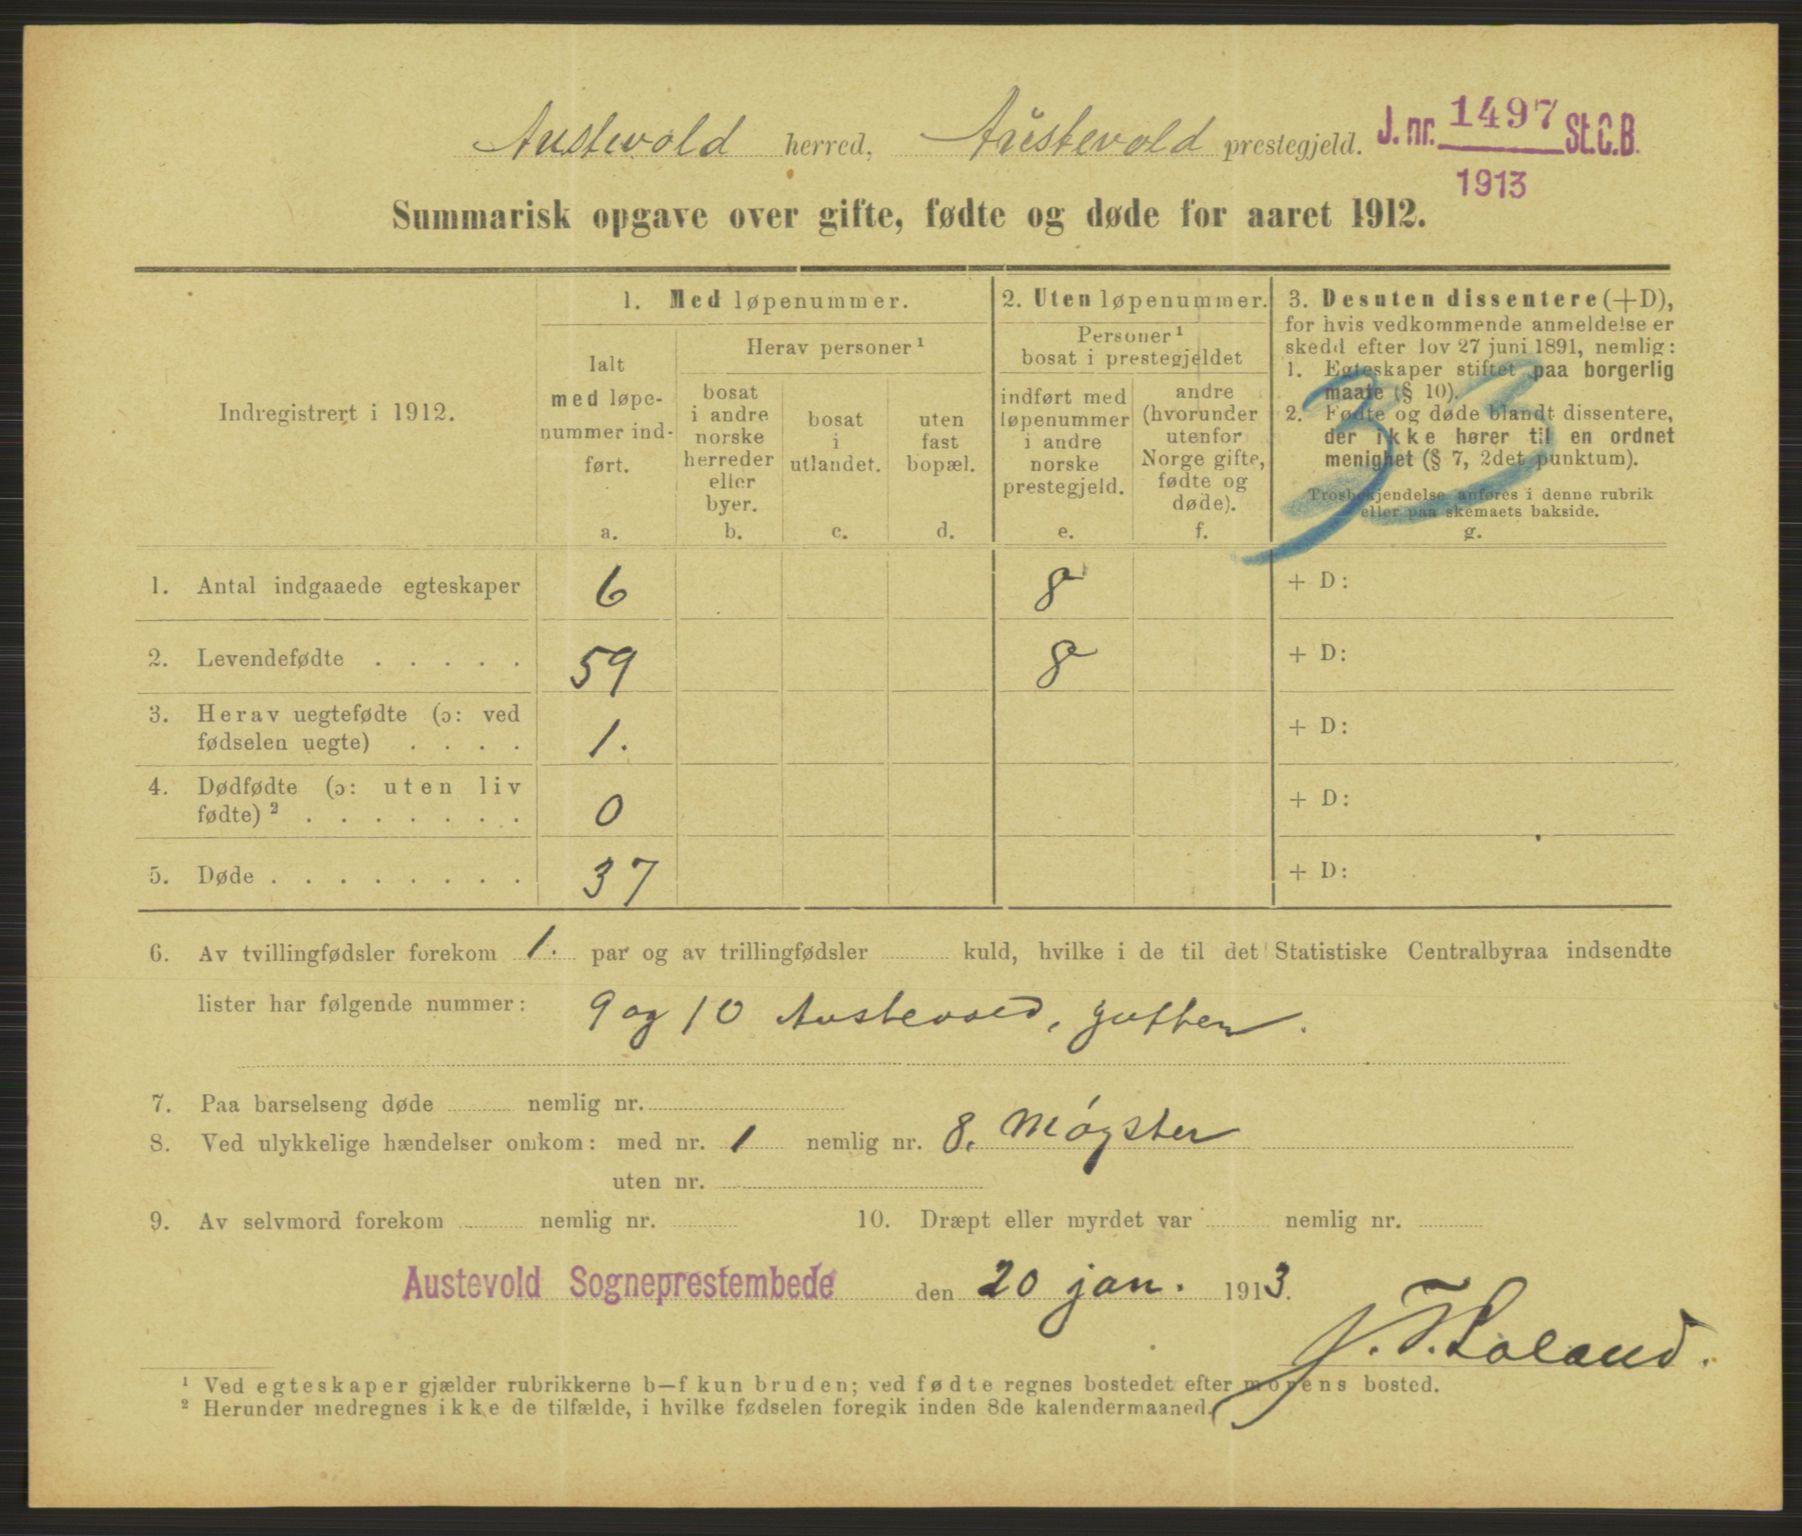 Austevold herred, Austevold prestegjeld. J. nr. 1497 St.C.B.
1913
Summarisk opgave over gifte, fødte og døde for aaret 1912.
Indregistrert i 1912.
1. Med løpenummer.
Ialt
med løpe-
nummer ind-
ført.
a.
Herav personer ¹
bosat
i andre
norske
herreder
eller
byer.
b.
bosat
i
utlandet.
c.
uten
fast
bopæl.
d.
2. Uten løpenummer.
Personer ¹
bosat i prestegjeldet
indført med
løpenummer
i andre
norske
prestegjeld.
e.
andre
(hvorunder
utenfor
Norge gifte,
fødte og
døde).
f.
3. Desuten dissentere (+D),
for hvis vedkommende anmeldelse er
skedd efter lov 27 juni 1891, nemlig:
1. Egteskaper stiftet paa borgerlig
maate (§ 10).
2. Fødte og døde blandt dissentere,
der ikke hører til en ordnet
menighet (§ 7, 2det punktum).
Trosbekjendelse anføres i denne rubrik
eller paa skemaets bakside.
g.
33
1. Antal indgaaede egteskaper 6 8 + D:
2. Levendefødte . . . . . 59 8 + D:
3. Herav uegtefødte (ɔ: ved
fødselen uegte) . . . . 1. + D:
4. Dødfødte (ɔ: uten liv
fødte) ² . . . . . . . 0 + D:
5. Døde . . . . . . . . 37 + D:
6. Av tvillingfødsler forekom 1. par og av trillingfødsler kuld, hvilke i de til det Statistiske Centralbyraa indsendte
lister har følgende nummer: 9 og 10 Austevold, gutter.
7. Paa barselseng døde nemlig nr.
8. Ved ulykkelige hændelser omkom: med nr. 1 nemlig nr. 8. Møgster
uten nr.
9. Av selvmord forekom nemlig nr. 10. Dræpt eller myrdet var nemlig nr.
Austevold Sogneprestembede den 20 jan. 1913.
J. T. Loland.
¹ Ved egteskaper gjælder rubrikkerne b—f kun bruden; ved fødte regnes bostedet efter morens bosted.
² Herunder medregnes ikke de tilfælde, i hvilke fødselen foregik inden 8de kalendermaaned.